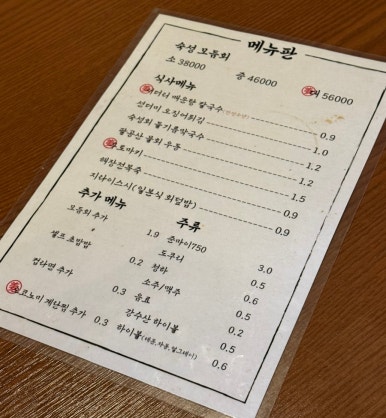 메뉴판
숙성 모듬회
소 38000 중 46000 대 56000
식사메뉴
매운탕 칼국수 0.9
선더미 오징어튀김 1.0
숙성회 물기름막국수 1.2
얼공산 물회 우동 1.2
후토마키 1.5
해장전복죽 0.9
지타이스시(일본식 회덮밥) 0.9
추가 메뉴
모듬회 추가 1.9
셀프 초밥밥 0.2
컵라면 추가 0.3
오코노미 계란찜 추가 0.3
주류
준마이750 3.0
도쿠리 0.5
청하 0.6
소주/맥주 0.5
음료 0.2
강수산 하이볼 0.5
하이볼(레몬,자몽,얼그레이) 0.6